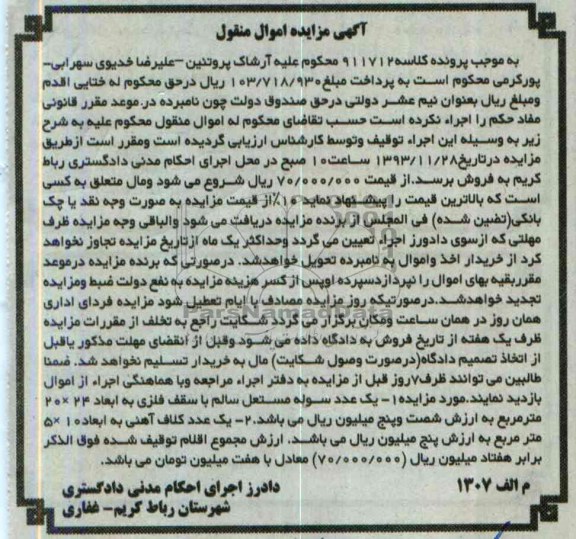 آگهی مزایده اموال منقول
به موجب پرونده کلاسه۹۱۱۷۱۲ محکوم علیه آرشاک پروتنین –علیرضا خدیوی سهرابی–
پورکرمی محکوم است به پرداخت مبلغ۱۰۳/۷۱۸/۹۳۰ ریال درحق محکوم له ختایی اقدم
ومبلغ ریال بعنوان نیم عشر دولتی درحق صندوق دولت چون نامبرده در.موعد مقرر قانونی
مفاد حکم را اجراء نکرده است حسب تقاضای محکوم له اموال منقول محکوم علیه به شرح
زیر به وسیله این اجراء توقیف وتوسط کارشناس ارزیابی گردیده است ومقرر است ازطریق
مزایده درتاریخ۱۳۹۳/۱۱/۲۸ ساعت۱۰ صبح در محل اجرای احکام مدنی دادگستری رباط
کریم به فروش برسد.از قیمت ۷۰/۰۰۰/۰۰۰ ریال شروع می شود ومال متعلق به کسی
است که بالاترین قیمت را پیشنهاد نماید ۱۰٪از قیمت مزایده به صورت وجه نقد یا چک
بانکی(تضین شده) فی المجلس از برنده مزایده دریافت می شود والباقی وجه مزایده ظرف
مهلتی که ازسوی دادورز اجراء تعیین می گردد وحداکثر یک ماه ازتاریخ مزایده تجاوز نخواهد
کرد از خریدار اخذ واموال به نامبرده تحویل خواهدشد. درصورتی که برنده مزایده درموعد
مقرربقیه بهای اموال را نپردازدسپرده اوپس از کسر هزینه مزایده به نفع دولت ضبط ومزایده
تجدید خواهدشد.درصورتیکه روز مزایده مصادف با ایام تعطیل شود مزایده فردای اداری
همان روز در همان ساعت ومکان برگزار می گردد شکایت راجع به تخلف از مقررات مزایده
ظرف یک هفته از تاریخ فروش به دادگاه داده می شود وقبل از انقضای مهلت مذکور یاقبل
از اتخاذ تصمیم دادگاه(درصورت وصول شکایت) مال به خریدار تسلیم نخواهد شد. ضمنا
طالبین می توانند ظرف۷روز قبل از مزایده به دفتر اجراء مراجعه وبا هماهنگی اجراء از اموال
بازدید نمایند.مورد مزایده۱- یک عدد سوله مستعل سالم با سقف فلزی به ابعاد ۲۴ *۲۰
مترمربع به ارزش شصت وپنج میلیون ریال می باشد.۲- یک عدد کلاف آهنی به ابعاد۱۰ *۵
متر مربع به ارزش پنج میلیون ریال می باشد. ارزش مجموع اقلام توقیف شده فوق الذکر
برابر هفتاد میلیون ریال (۷۰/۰۰۰/۰۰۰) معادل با هفت میلیون تومان می باشد.
م الف ۱۳۰۷
دادرز اجرای احکام مدنی دادگستری
شهرستان رباط کریم- غفاری
ParsNamadData